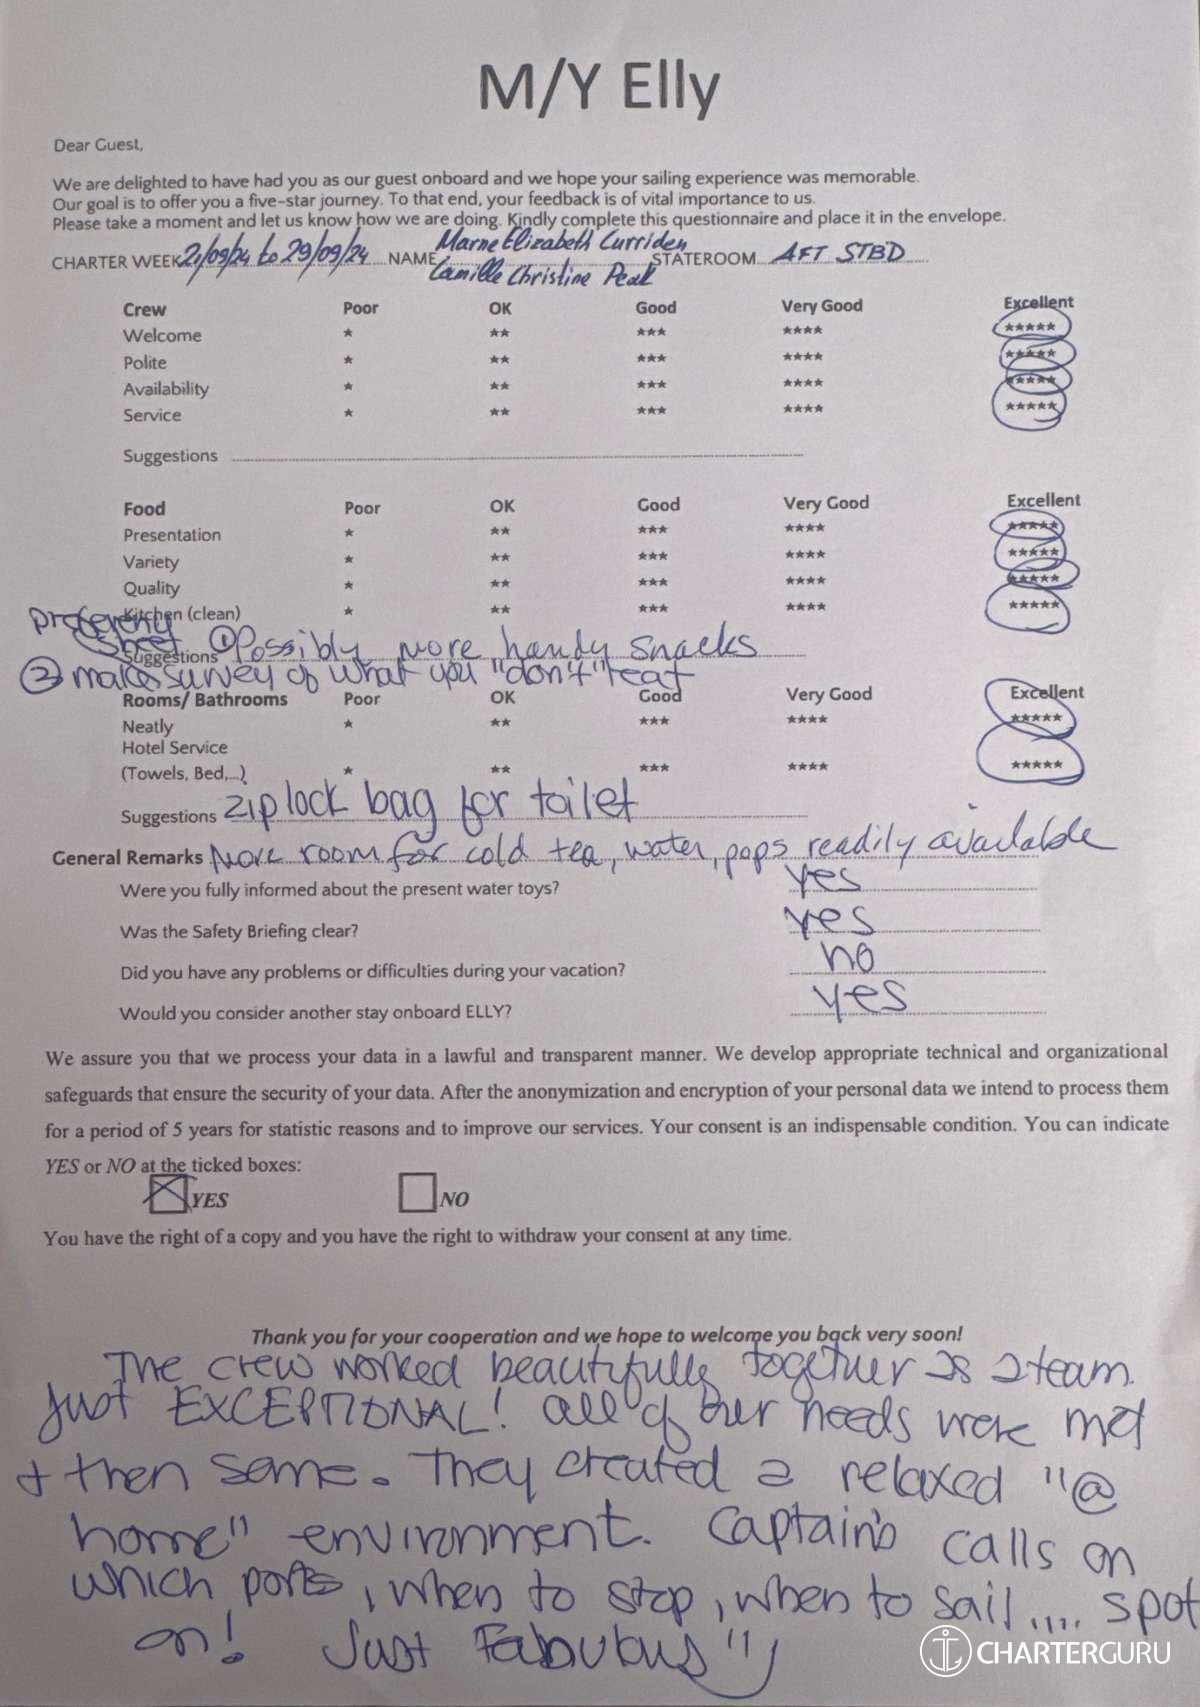 M/Y Elly
Dear Guest,
We are delighted to have had you as our guest onboard and we hope your sailing experience was memorable.
Our goal is to offer you a five-star journey. To that end, your feedback is of vital importance to us.
Please take a moment and let us know how we are doing. Kindly complete this questionnaire and place it in the envelope.
Marne Elizabeth Curriden
CHARTER WEEK 21/09/24 to 29/09/24 NAME STATEROOM AFT STBD
Camille Christine Peak
Crew Poor OK Good Very Good Excellent
Welcome * ** *** **** *****
Polite * ** *** **** *****
Availability * ** *** **** *****
Service * ** *** **** *****
Suggestions
Food Poor OK Good Very Good Excellent
Presentation * ** *** **** *****
Variety * ** *** **** *****
Quality * ** *** **** *****
Kitchen (clean) * ** *** **** *****
sheet
Suggestions ① Possibly more handy snacks
② make survey of what you "don't" eat
Rooms/ Bathrooms Poor OK Good Very Good Excellent
Neatly * ** *** **** *****
Hotel Service
(Towels, Bed,...) * ** *** **** *****
Suggestions Ziplock bag for toilet
General Remarks More room for cold tea, water, pops readily available
Were you fully informed about the present water toys? yes
Was the Safety Briefing clear? yes
Did you have any problems or difficulties during your vacation? no
Would you consider another stay onboard ELLY? yes
We assure you that we process your data in a lawful and transparent manner. We develop appropriate technical and organizational
safeguards that ensure the security of your data. After the anonymization and encryption of your personal data we intend to process them
for a period of 5 years for statistic reasons and to improve our services. Your consent is an indispensable condition. You can indicate
YES or NO at the ticked boxes:
YES NO
You have the right of a copy and you have the right to withdraw your consent at any time.
Thank you for your cooperation and we hope to welcome you back very soon!
The crew worked beautifully together as a team.
Just EXCEPTIONAL! All of our needs were met
+ then some. They created a relaxed "@
home" environment. Captain's calls on
which ports, when to stop, when to sail.... spot
on! Just Fabulous")
CHARTERGURU